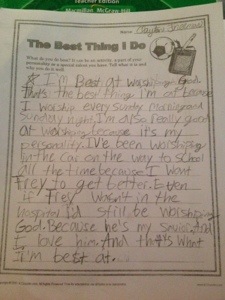 Teacher Edition
Macmillan McGraw-Hill
Name:
The Best Thing I Do
What do you do best?
personality or a special talent you have. Tell what it is and
why you do it well.
I'm Best at worshiping God.
that's the best thing I'm at because
I worship every sunday morning and
Sunday night, I'm also really good
at worshiping because it's my
personality. I've been worshiping
In the car on the way to school
all the time because I want
trey to get better. Even
if trey wasn't in the
hospital I'd still be worshiping
God. Because he's my
I love him. And that's what
I'm best at.